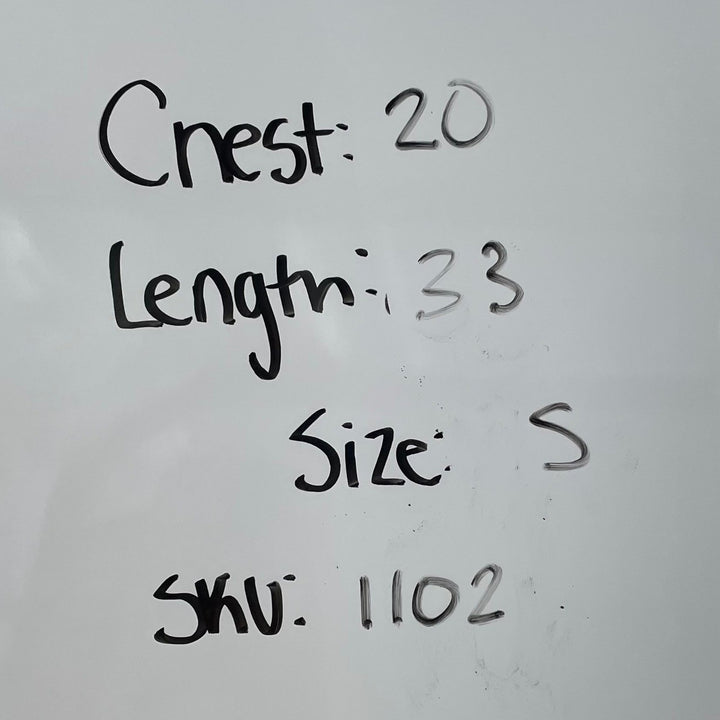 Chest: 20
Length: 33
Size: S
SKU: 1102